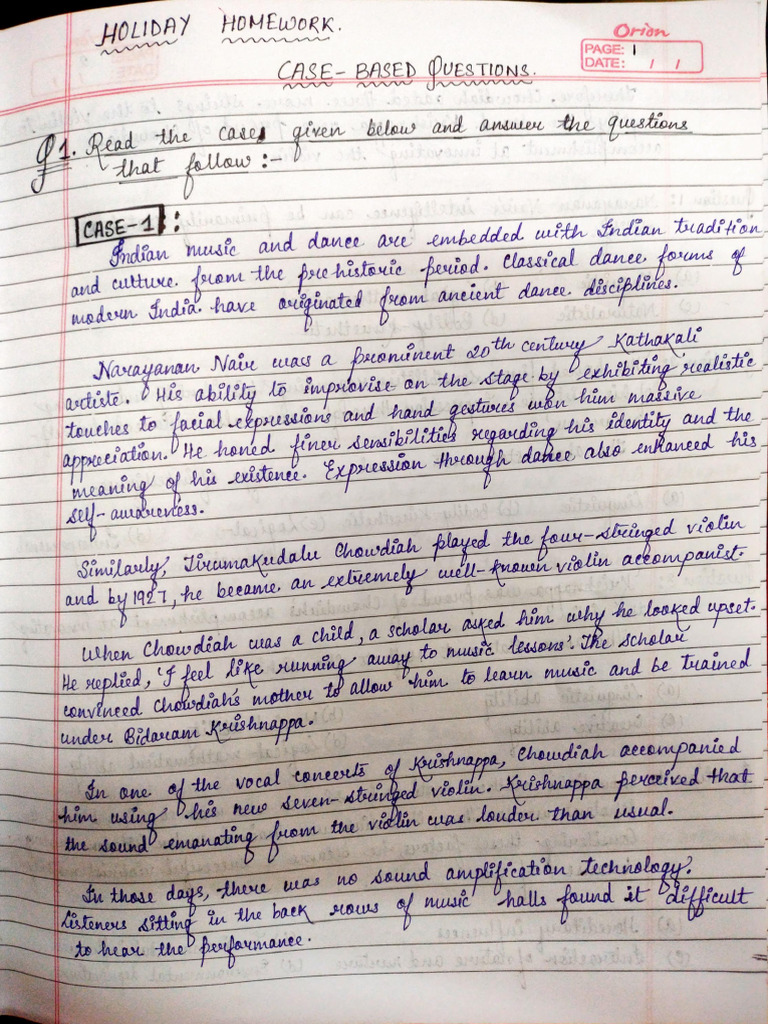 HOLIDAY HOMEWORK.
Orion
PAGE: 1
DATE: / /
CASE-BASED QUESTIONS.
Q1. Read the cases given below and answer the questions
that follow :-
CASE-1 :
Indian music and dance are embedded with Indian tradition
and culture from the prehistoric period. Classical dance forms of
modern India have originated from ancient dance disciplines.
Narayanan Nair was a prominent 20th century Kathakali
artiste. His ability to improvise on the stage by exhibiting realistic
touches to facial expressions and hand gestures won him massive
appreciation. He honed finer sensibilities regarding his identity and the
meaning of his existence. Expression through dance also enhanced his
self-awareness.
Similarly, Tirumakudalu Chowdiah played the four-stringed violin
and by 1927, he became an extremely well-known violin accompanist.
When Chowdiah was a child, a scholar asked him why he looked upset.
He replied, 'I feel like running away to music lessons'. The scholar
convinced Chowdiah's mother to allow him to learn music and be trained
under Bidaram Krishnappa.
In one of the vocal concerts of Krishnappa, Chowdiah accompanied
him using his new seven-stringed violin. Krishnappa perceived that
the sound emanating from the violin was louder than usual.
In those days, there was no sound amplification technology.
Listeners sitting in the back rows of music halls found it difficult
to hear the performance.